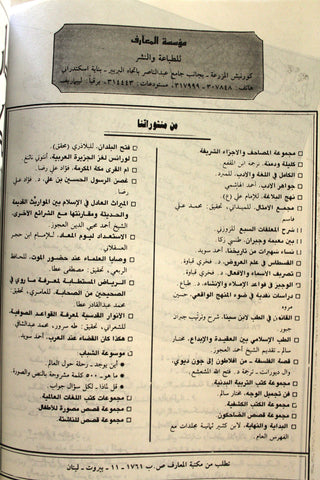 مؤسسة المعارف
للطباعة والنشر
كورنيش المزرعة - بجانب جامع عبدالناصر باتجاه البربير - بناية اسكندراني
هاتف: ٣٠٧٨٤٨ - ٣١٧٩٩٩ مستودعات: ٣١٤٤٤٣ برقياً:
من منشوراتنا
مجموعة المصاحف والاجزاء الشريفة
كليلة ودمنة. ترجمة ابن المقفع
الكامل في اللغة والأدب. للمبرد
جواهر الأدب. أحمد الهاشمي
نهج البلاغة. للإمام علي (ع)
مجمع الأمثال. للميداني، تحقيق:
قاسم
شرح المعلقات السبع للزوزني.
بين بعيجة وجبران. طنسي زكا.
نساء شهيرات من تاريخنا. أحمد سويد.
القسطاس في علم العروض. د. فخري قباوة
تصريف الأسماء والأفعال. د. فخري قباوة
الوجيز في قواعد الإملاء والإنشاء. د. طباع
دراسات نقدية في ضوء المنهج الواقعي. حسين
مروه
القانون في الطب لابن سينا. شرح وترتيب جبران
جبور
الطب الإسلامي بين العقيدة والإبداع. مختار
سالم. تقديم الشيخ أحمد العجوز.
قصة الفلسفة - من افلاطون إلى جون ديوي.
وال ديورانت. ترجمة د. فتح الله المشعشع
مجموعة كتب التربية البدنية.
فن تجميل الوجه. مختار سالم
مجموعة الكتب الكشفية
مجموعة قصص الضاحكون
البداية والنهاية. لابن كثير ثمانية مجلدات مع
الفهرس العام.
فتح البلدان. للبلاذري (تحقيق).
لورانس لغز الجزيرة العربية. أنتوني ناتنغ
أم القرى مكة المكرمة. د. فؤاد علي رضا.
غصن الرسول الحسين بن علي. د. فؤاد علي
رضا
الميراث العادل في الإسلام بين المواريث القديمة
والحديثة ومقارنتها مع الشرائع الأخرى.
الشيخ أحمد محيي الدين العجوز.
الاستعداد ليوم المعاد. للإمام ابن حجر
العسقلاني.
وصايا العلماء عند حضور الموت. للحافظ
الربعي، تحقيق: مصطفى عطا.
الرياض المستطابة لمعرفة ما روي في
الصحيحين من الصحابة. للعامري، تحقيق:
محمد عبدالقادر عطا
الأنوار القدسية لمعرفة القواعد الصوفية.
للشعراني، تحقيق: طه سرور، محمد عيدالشافي
هكذا كان القضاء عند العرب. أحمد سويد.
موسوعة الشباب
أين يوجد - رحلة حول العالم.
ما هو - ٥٠٠ كلمة مشروحة بالنص والصورة
قل لماذا. لكل سؤال جواب.
مجموعة كتب اللغات العالمية
مجموعة قصص مصورة للأطفال
مجموعة قصص للناشئة
تطلب من مكتبة المعارف ص. ب ١٧٦١ - ١١ - بيروت - لبنان